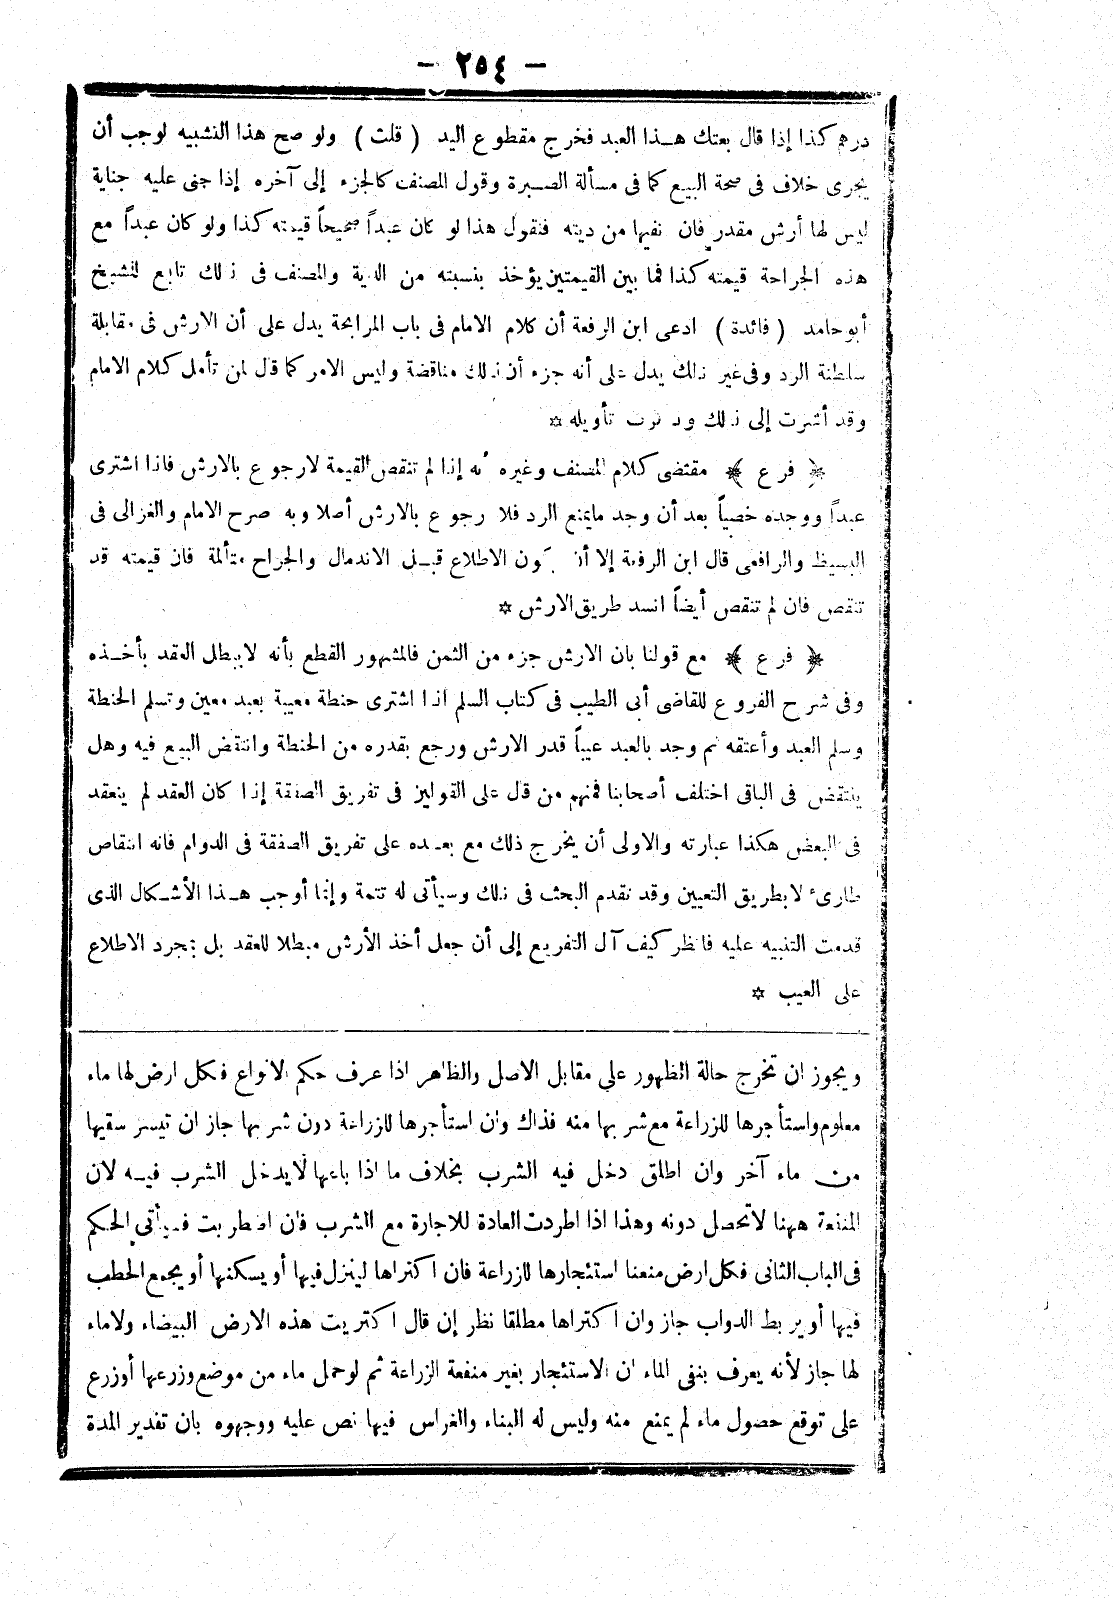 - ٢٥٤ -
درهم كذا إذا قال بعتك هـذا العبد فخرج مقطوع اليد ( قلت ) ولو صح هذا التشبيه لوجب أن
يجرى خلاف فى صحة البيع كما فى مسألة الصـبرة وقول المصنف كالجزء إلى آخره إذا جنى عليه جناية
ليس لها أرش مقدر فان نفيها من ديته فنقول هذا لو كان عبداً صحيحاً قيمته كذا ولو كان عبداً مع
هذه الجراحة قيمته كذا فما بين القيمتين يؤخذ بنسبته من الدية والمصنف فى ذلك تابع للشيخ
أبو حامد ( فائدة ) ادعى ابن الرفعة أن كلام الامام فى باب المرابحة يدل على أن الارش فى مقابلة
سلطنة الرد وفى غير ذلك يدل على أنه جزء أن ذلك مناقضة وليس الامر كما قال لمن تأمل كلام الامام
وقد أشرت إلى ذلك تأويله *
﴿ فرع ﴾ مقتضى كلام المصنف وغيره أنه إذا لم تنقص القيمة لارجوع بالارش فاذا اشترى
عبداً ووجده خصياً بعد أن وجد مايمنع الرد فلا رجوع بالارش أصلا وبه صرح الامام والغزالى فى
البسيط والرافعى قال ابن الرفعة إلا أن يكون الاطلاع قبـل الاندمال والجراح متألمة فان قيمته قد
تنقص فان لم تنقص أيضاً انسد طريق الارش *
﴿ فرع ﴾ مع قولنا بان الارش جزء من الثمن فالمشهور القطع بأنه لايبطل العقد بأخـذه
وفى شرح الفروع للقاضى أبى الطيب فى كتاب السلم اذا اشترى حنطة معيبة بعبد معين وتسلم الحنطة
وسلم العبد وأعتقه ثم وجد بالعبد عيباً قدر الارش ورجع بقدره من الحنطة وانتقض البيع فيه وهل
ينتقض فى الباقى اختلف أصحابنا فمنهم من قال على القولين فى تفريق الصفقة إذا كان العقد لم ينعقد
فى البعض هكذا عبارته والاولى أن يخرج ذلك مع بعـده على تفريق الصفقة فى الدوام فانه انتقاص
طارئ لابطريق التعيين وقد تقدم البحث فى ذلك وسيأتى له تتمة وإنما أوجب هـذا الأشـكال الذى
قدمت التنبيه عليه فانظر كيف آل التفريع إلى أن جعل أخذ الأرش مبطلا للعقد بل بمجرد الاطلاع
على العيب *
ويجوز ان تخرج حالة الظهور على مقابل الاصل والظاهر اذا عرف حكم الانواع فكل ارض لها ماء
معلوم واستأجرها للزراعة مع شربها منه فذاك وان استأجرها للزراعة دون شربها جاز ان تيسر سقيها
من ماء آخر وان اطلق دخل فيه الشرب بخلاف ما اذا باعها لايدخل الشرب فيـه لان
المنفعة ههنا لاتحصل دونه وهذا اذا اطردت العادة للاجارة مع الشرب فان اضطربت فسيأتى الحكم
فى الباب الثانى فكل ارض منعنا استئجارها للزراعة فان اكتراها لينزل فيها أو يسكنها أو يجمع الحطب
فيها أو يربط الدواب جاز وان اكتراها مطلقا نظر إن قال اكتريت هذه الارض البيضاء ولاماء
لها جاز لأنه يعرف بنفى الماء ان الاستئجار بغير منفعة الزراعة ثم لو حمل ماء من موضع وزرعها أوزرع
على توقع حصول ماء لم يمنع منه وليس له البناء والغراس فيها نص عليه ووجهوه بان تقدير المدة